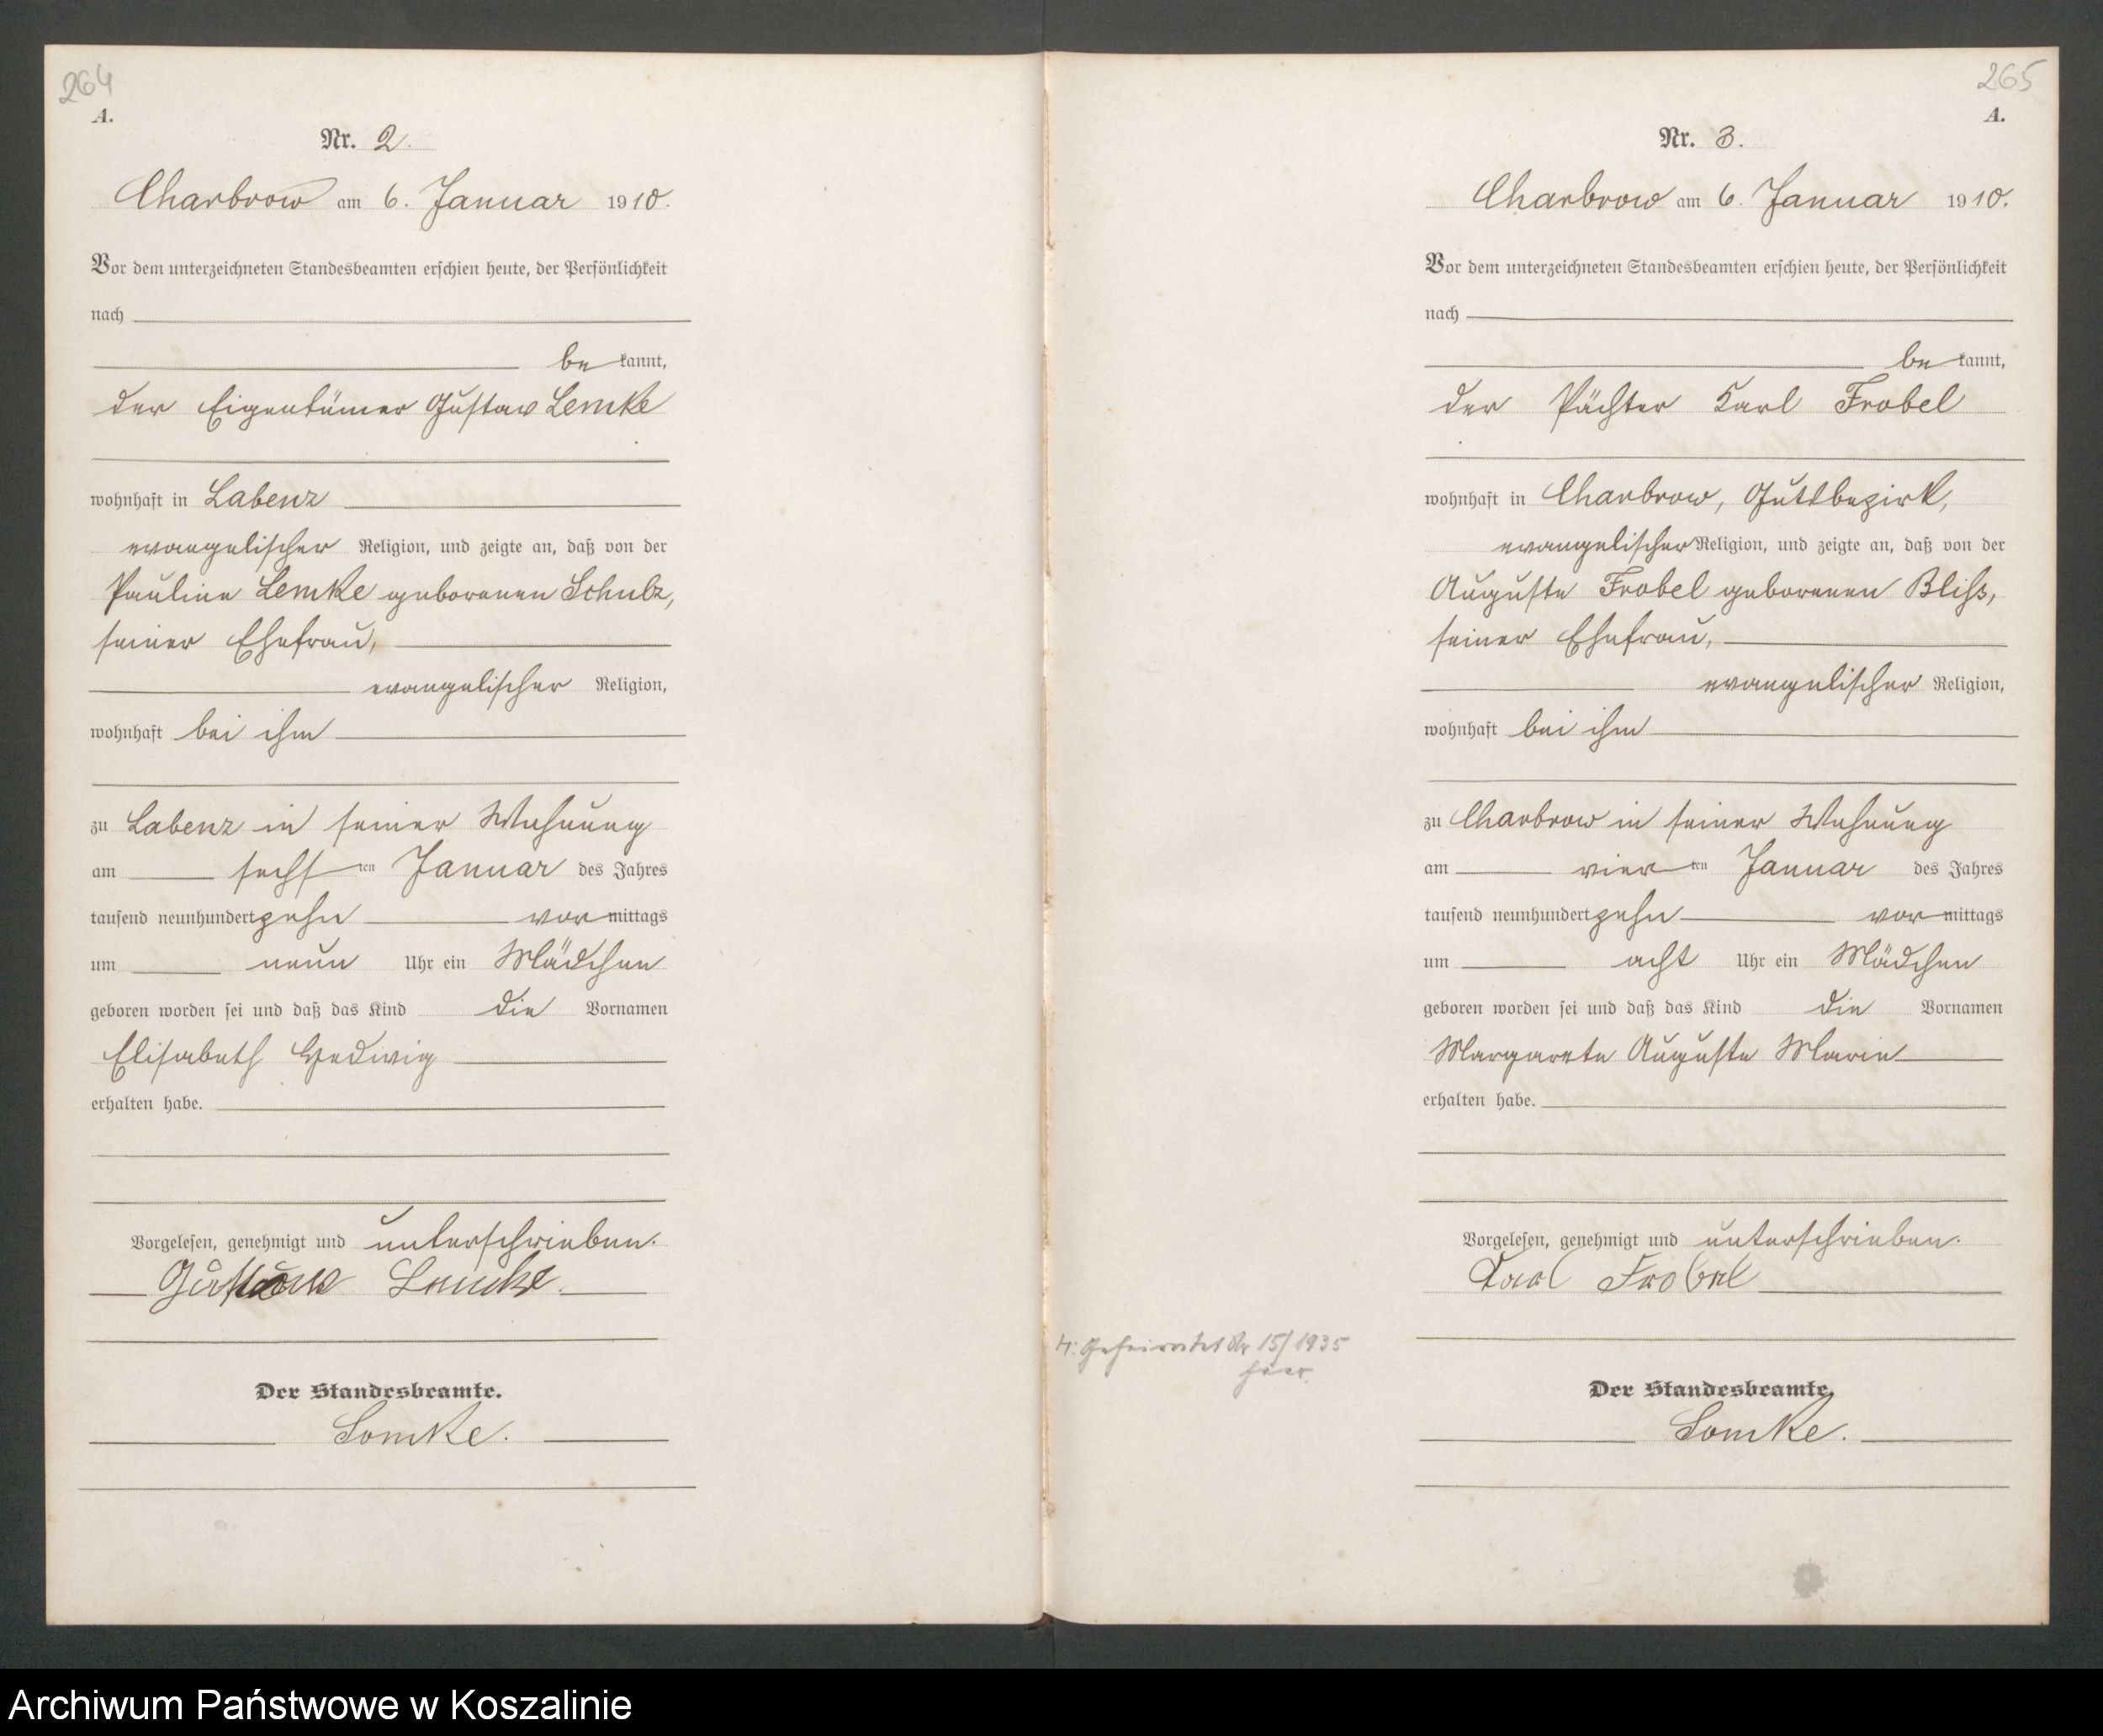 264
A.
Nr. 2.
Charbrow am 6. Januar 1910.
Vor dem unterzeichneten Standesbeamten erschien heute, der Persönlichkeit
nach
be kannt,
der Eigentümer Gustav Lemke
wohnhaft in Labenz
evangelischer Religion, und zeigte an, daß von der
Pauline Lemke geborenen Schulz,
seiner Ehefrau,
evangelischer Religion,
wohnhaft bei ihm
zu Labenz in seiner Wohnung
am sechsten Januar des Jahres
tausend neunhundert zehn vormittags
um neun Uhr ein Mädchen
geboren worden sei und daß das Kind die Vornamen
Elisabeth Hedwig
erhalten habe.
Vorgelesen, genehmigt und unterschrieben.
Gustav Lemke
Der Standesbeamte.
Lomke.
265
A.
Nr. 3.
Charbrow am 6. Januar 1910.
Vor dem unterzeichneten Standesbeamten erschien heute, der Persönlichkeit
nach
be kannt,
der Pächter Karl Frobel
wohnhaft in Charbrow, Gutsbezirk,
evangelischer Religion, und zeigte an, daß von der
Auguste Frobel geborenen Bliß,
seiner Ehefrau,
evangelischer Religion,
wohnhaft bei ihm
zu Charbrow in seiner Wohnung
am vierten Januar des Jahres
tausend neunhundert zehn vormittags
um acht Uhr ein Mädchen
geboren worden sei und daß das Kind die Vornamen
Margarete Auguste Marie
erhalten habe.
Vorgelesen, genehmigt und unterschrieben.
Karl Frobel
Geheiratet Nr 15/1935
hier.
Der Standesbeamte.
Lomke.
Archiwum Państwowe w Koszalinie